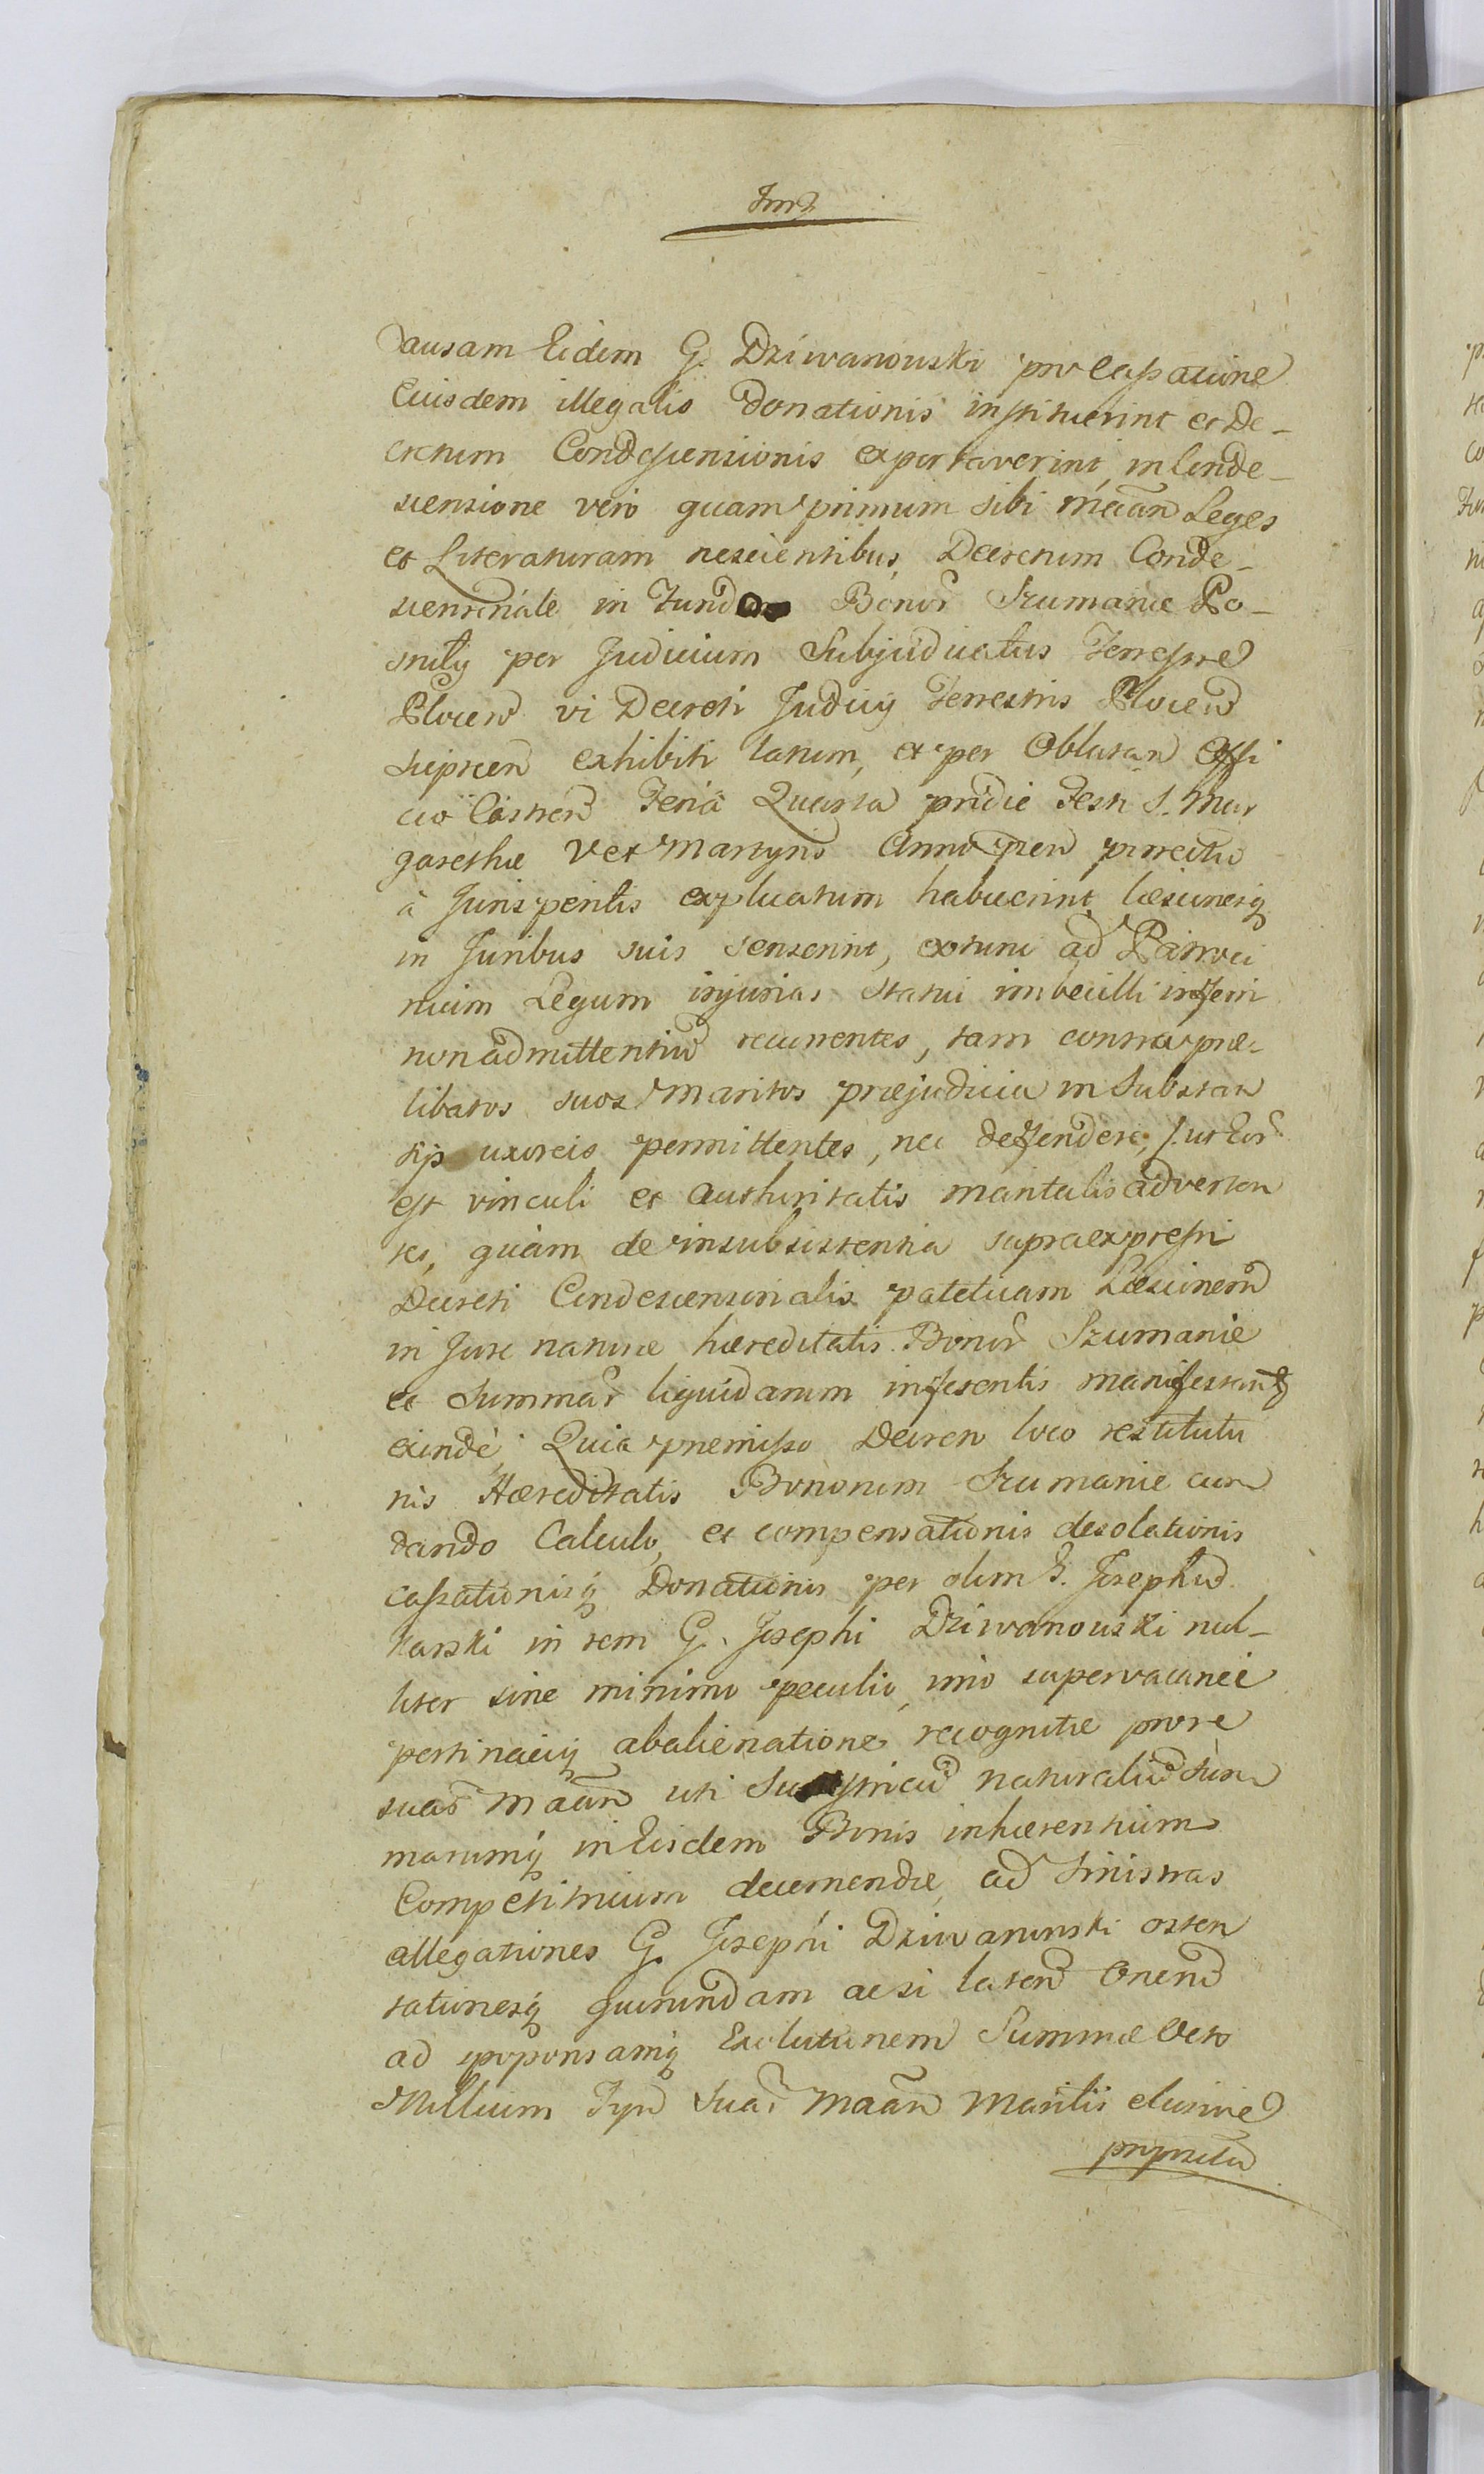 Causam Eidem G. Dziwanowski pro Cassatione
Eiusdem illegalis Donationis instituerint et De-
cretum Condescensionis exportaverint, in Conde-
scensione vero quam primum sibi Leges
et Literaturam nescientibus, Decretum Conde-
scensionale in Fundo Bonor Szumanie Po-
per Judicium Subjudicatus Terrestre
Plocen vi Decreti Judicij Terrestris Plocen
exhibiti latum, et per Oblatan Offi
cio Castren Feria Quarta pridie Festi S. Mar
garethæ V et Martyris Anno
â Jurisperitis explicatum habuerint, læsionesq
in Juribus suis senserint, extunc ad Patroci
nium Legum injurias statui imbecilli inferri
non admittentiu recurrentes, tam contra præ-
libatos suos Maritos præjudicia in Substan
tijs uxoreis permittentes, nec deffendere,
est vinculi et Authoritatis maritalis adverten
tes, quam de insubsistentia supraexpressi
Decreti Condescensionalis pateticam Læsionem
in Jure naturæ hæreditatis Bonor Szumanie
et Summar liquidarum inferentis manifestant
exinde, Quia præmisso Decreto loco restitutio
nis Hæreditatis Bonorum Szumanie cum
dando Calculo, et compensationis desolationis
cassationisq Donationis per olim G. Josephu
Karski in rem G. Josephi Dziwanowski nul-
liter sine minimo peculio, imo supervacanee
pertinaciq abalienatione recognitæ pro re
suar Maan uti naturaliu Sum
marumq in Eisdem Bonis inhærentium
Competitricium decernendæ, ad sinistras
allegationes G. Josephi Dziwanowski osten
sationesq quorundam acsi laten Onen
ad Exolutionem Summæ Octo
Millium Suar Maan Maritis elusive